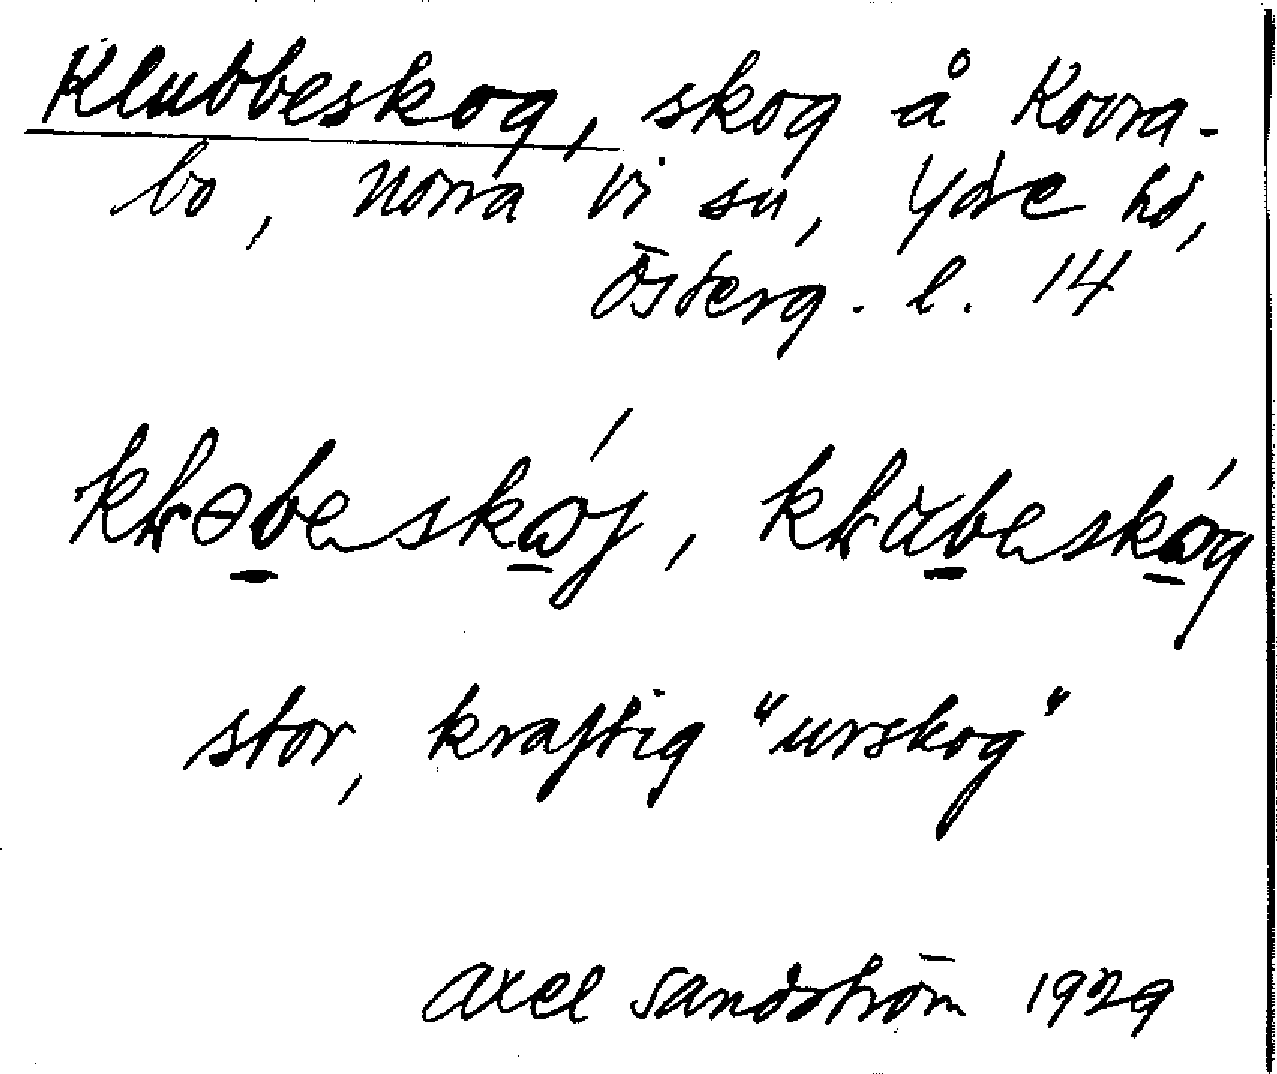 Klubbeskog, skog å Kovra-
bo, Norra Vi sn, Ydre hd,
Österg. l. 14
stor, kraftig "urskog"
Axel Sandström 1929